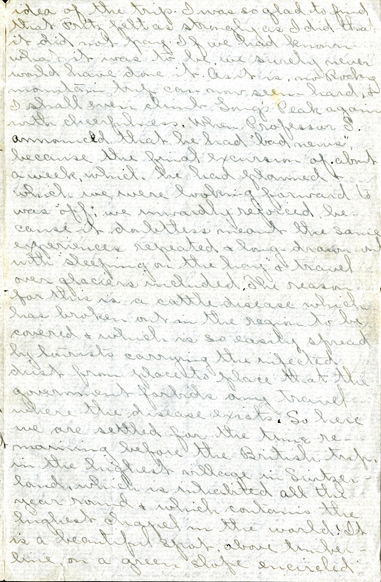 idea of the trip. I was so glad to find
that felt as strongly as I did that
it did not pay. If we had known
what it was to be, we surely never
would have done it. As it is, no Rocky
mountain trip can now seem hard, &
I shall even climb Long's Peak again
with cheerfulness. When Professor
announced that he had "bad news",
because the final excursion of about
a week, which we had planned &
which we were looking forward to
was "off", we inwardly rejoiced be-
cause it doubtless meant the same
experiences repeated & long drawn out
with "sleeping on the hay" & travel
over glaciers included. The reason
for this is a cattle disease which
has broken out in the region to be
covered & which is so easily spread
by tourists carrying the infected
dust from place to place that the
government forbids any travel
where the disease exists. So here
we are settled for the time re-
maining before the British trip,
in the highest village in Switzer-
land, which is inhabited all the
year round & which contains the
highest chapel in the world. It
is a beautiful spot, above timber-
line, on a green slope encircled